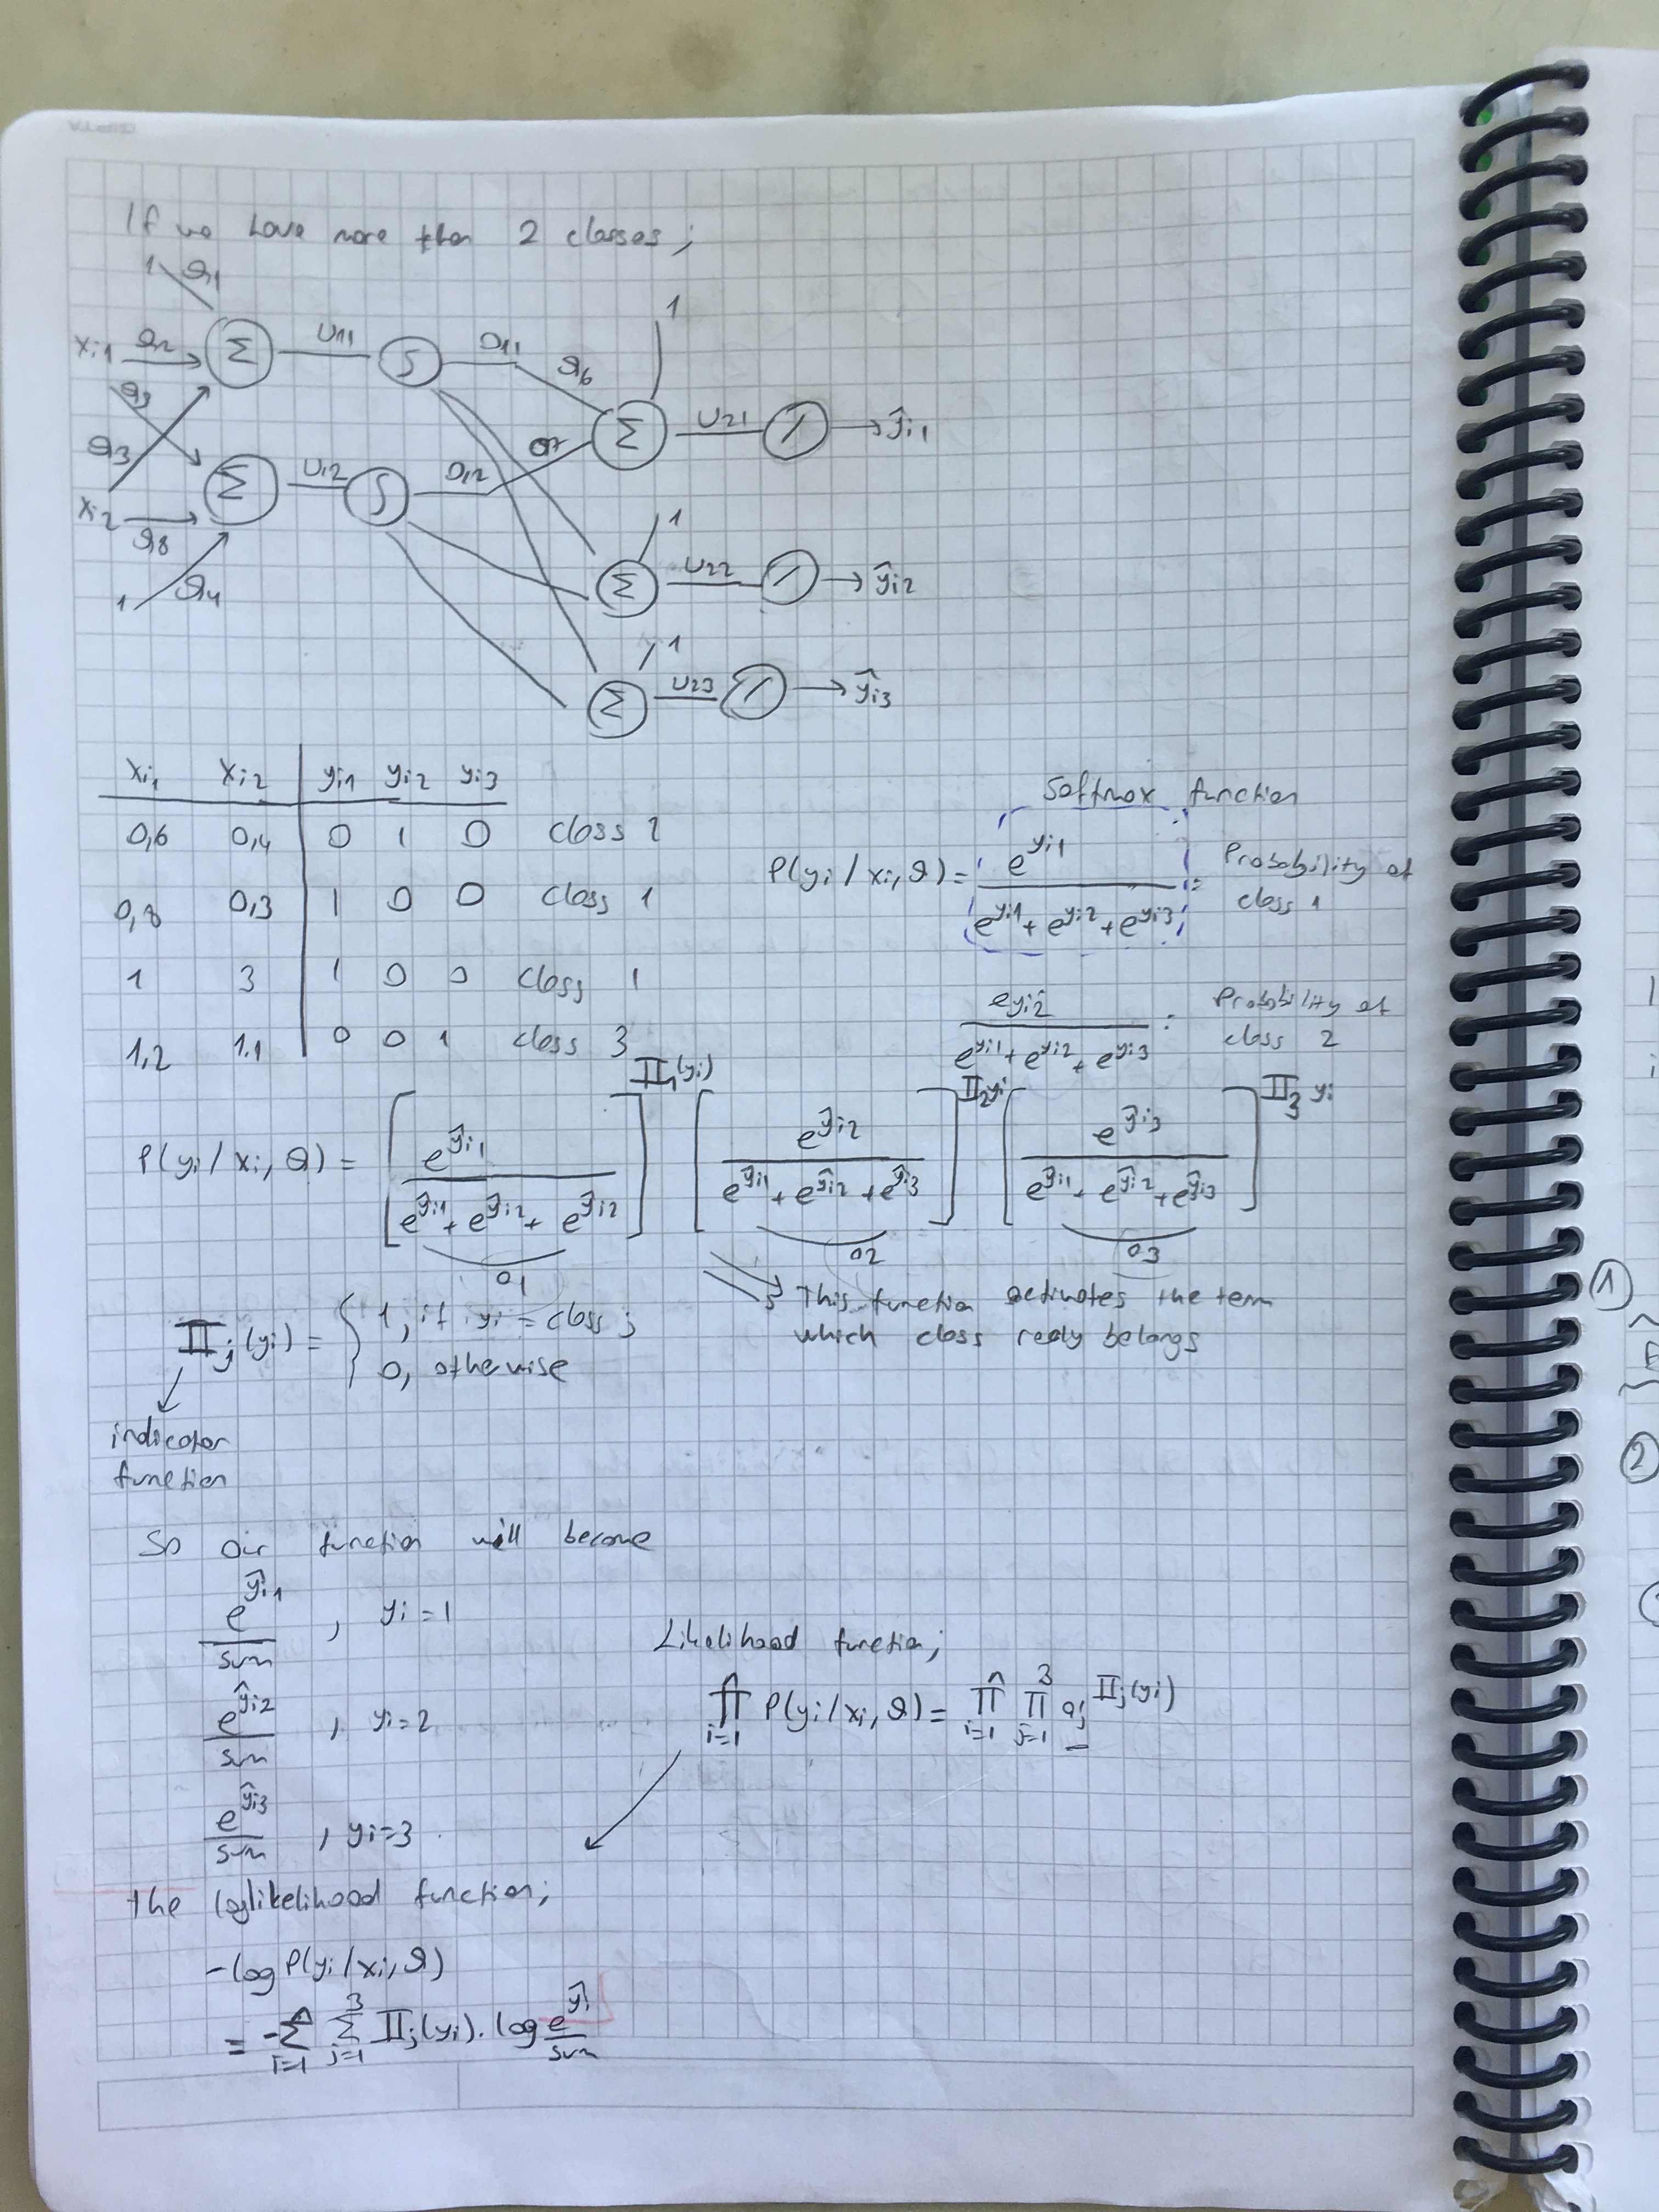 If we have more than 2 classes;
1 θ1
xi1 θ2 Σ U11 ∫ O11 θ6 1
θ3 Σ U21 / → ŷi1
θ3 Σ U12 ∫ O12 θ7
xi2 θ8
1 θ4
1 Σ U22 / → ŷi2
1 Σ U23 / → ŷi3
xi1 xi2 yi1 yi2 yi3
0,6 0,4 0 1 0 class 2
0,8 0,3 1 0 0 class 1
1 3 1 0 0 class 1
1,2 1.1 0 0 1 class 3
Softmax function
P(yi / xi, θ) = e^yi1 / (e^yi1 + e^yi2 + e^yi3) = Probability of class 1
e^yi2 / (e^yi1 + e^yi2 + e^yi3) : Probability of class 2
P(yi / xi, θ) = [e^ŷi1 / (e^ŷi1 + e^ŷi2 + e^ŷi2)]^𝕀1(yi) [e^ŷi2 / (e^ŷi1 + e^ŷi2 + e^ŷi3)]^𝕀2 yi [e^ŷi3 / (e^ŷi1 + e^ŷi2 + e^ŷi3)]^𝕀3 yi
o1 o2 o3
𝕀j(yi) = { 1, if yi = class j
0, otherwise
This function activates the term
which class realy belongs
indicator
function
So our function will become
e^ŷi1 / sum , yi = 1
e^ŷi2 / sum , yi = 2
e^ŷi3 / sum , yi = 3
Likelihood function;
∏ i=1 n P(yi / xi, θ) = ∏ i=1 n ∏ j=1 3 oj^𝕀j(yi)
the loglikelihood function;
-log P(yi / xi, θ)
= -Σ i=1 n Σ j=1 3 𝕀j(yi) . log e^ŷi / sum
1
2